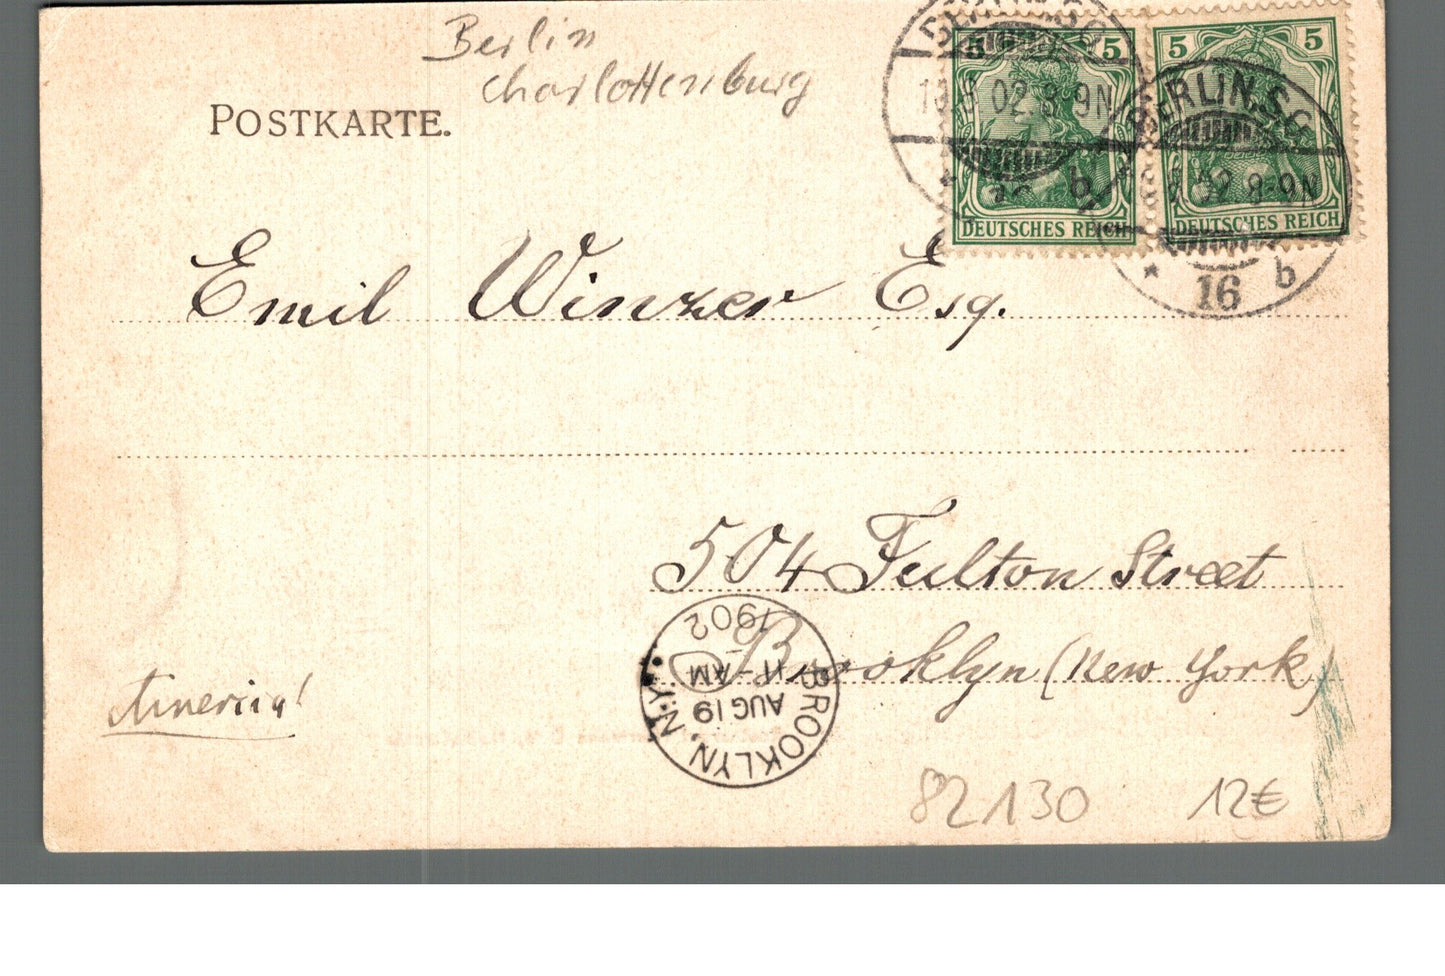 Berlin
Charlottenburg
POSTKARTE.
5 5
DEUTSCHES REICH
5 5
DEUTSCHES REICH
BERLIN.S.O.
02.8-9N
b
BERLIN.S.O.
02 8-9N
* 16 b
Emil Winzer Esq.
504 Fulton Street
Brooklyn (New York)
America!
BROOKLYN, N.Y.
AUG 19
11-AM
1902
82130
12€